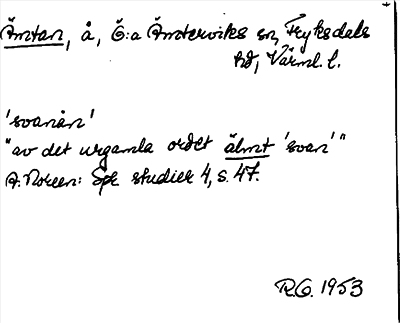 Ämtan, å, Ö:a Ämterviks sn, Fryksdals
hd, Värml. l.
'svanån'
"av det urgamla ordet älmt 'svan'"
A. Noreen: Spr. studier 4, s. 47.
R.G. 1953